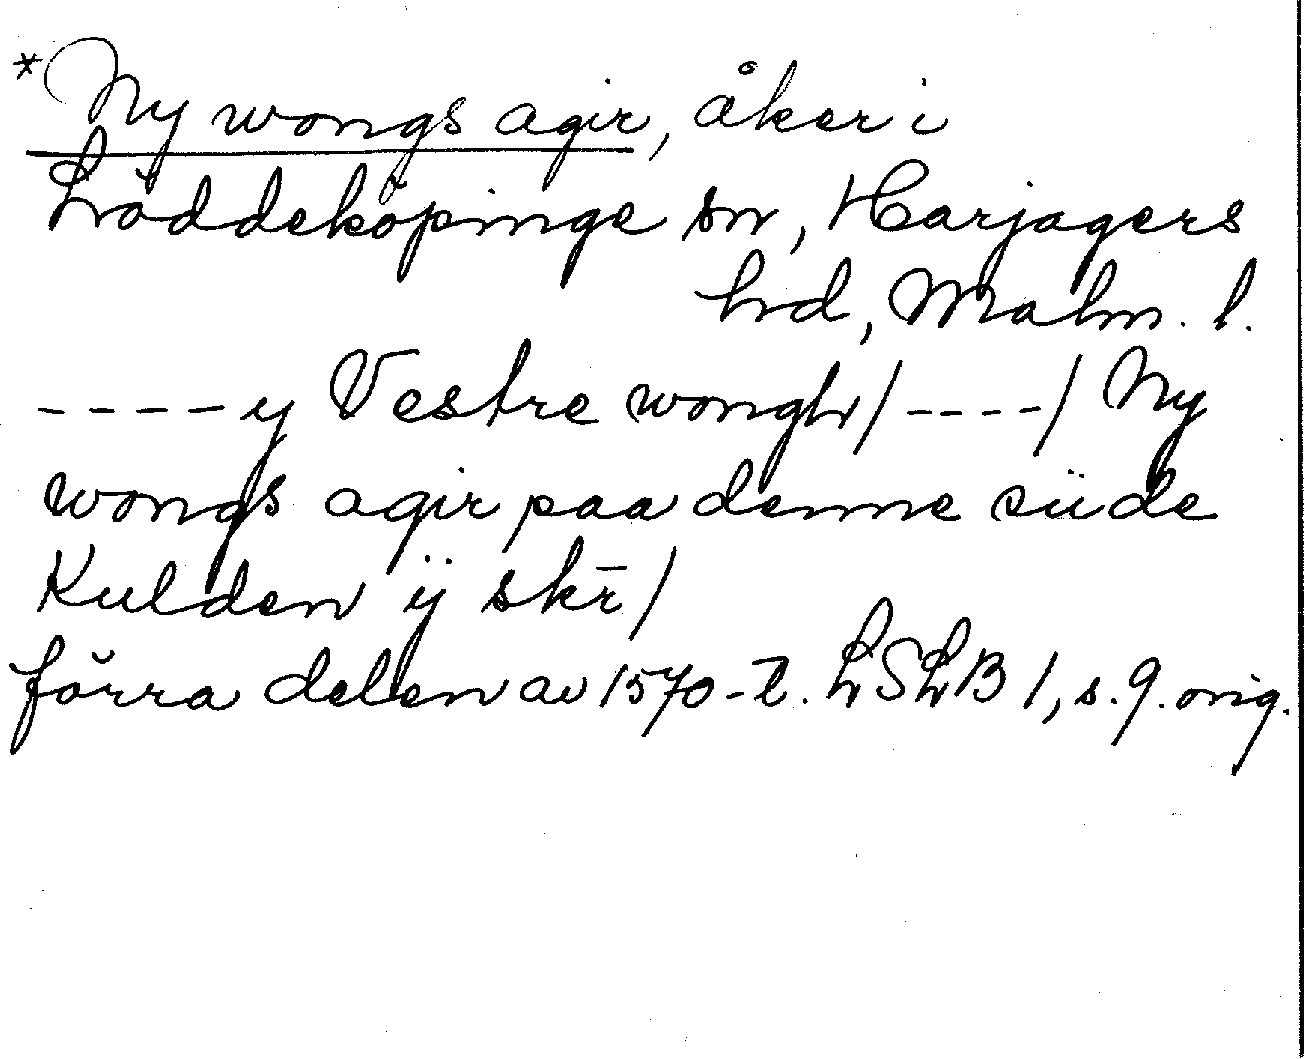 *Ny wongs agir, åker i
Löddeköpinge sn, Harjagers
hd, Malm. l.
----y Vestre wongh/----/ Ny
wongs agir paa denne siide
Kulden ÿ skr̄/
förra delen av 1570-t. LSLB 1, s. 9. orig.